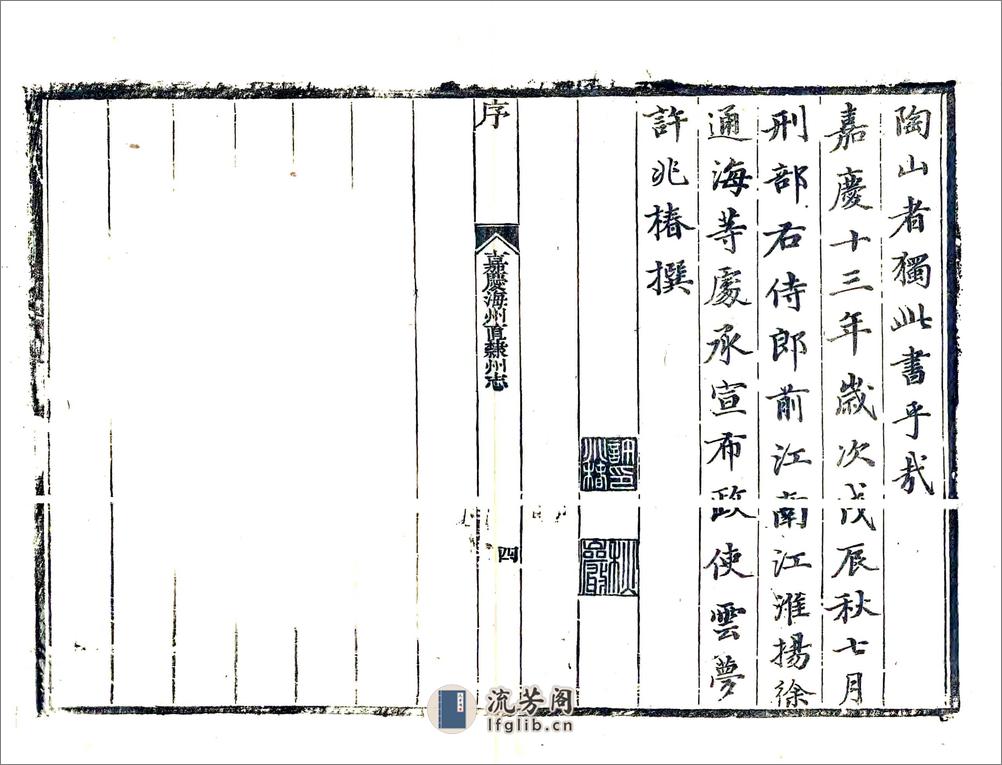 陶山者獨此書乎哉
嘉慶十三年歲次戊辰秋七月
刑部右侍郎前江南江淮揚徐
通海等處承宣布政使雲夢
許兆椿撰
序
嘉慶海州直隸州志
四
流芳阁
lfglib.cn